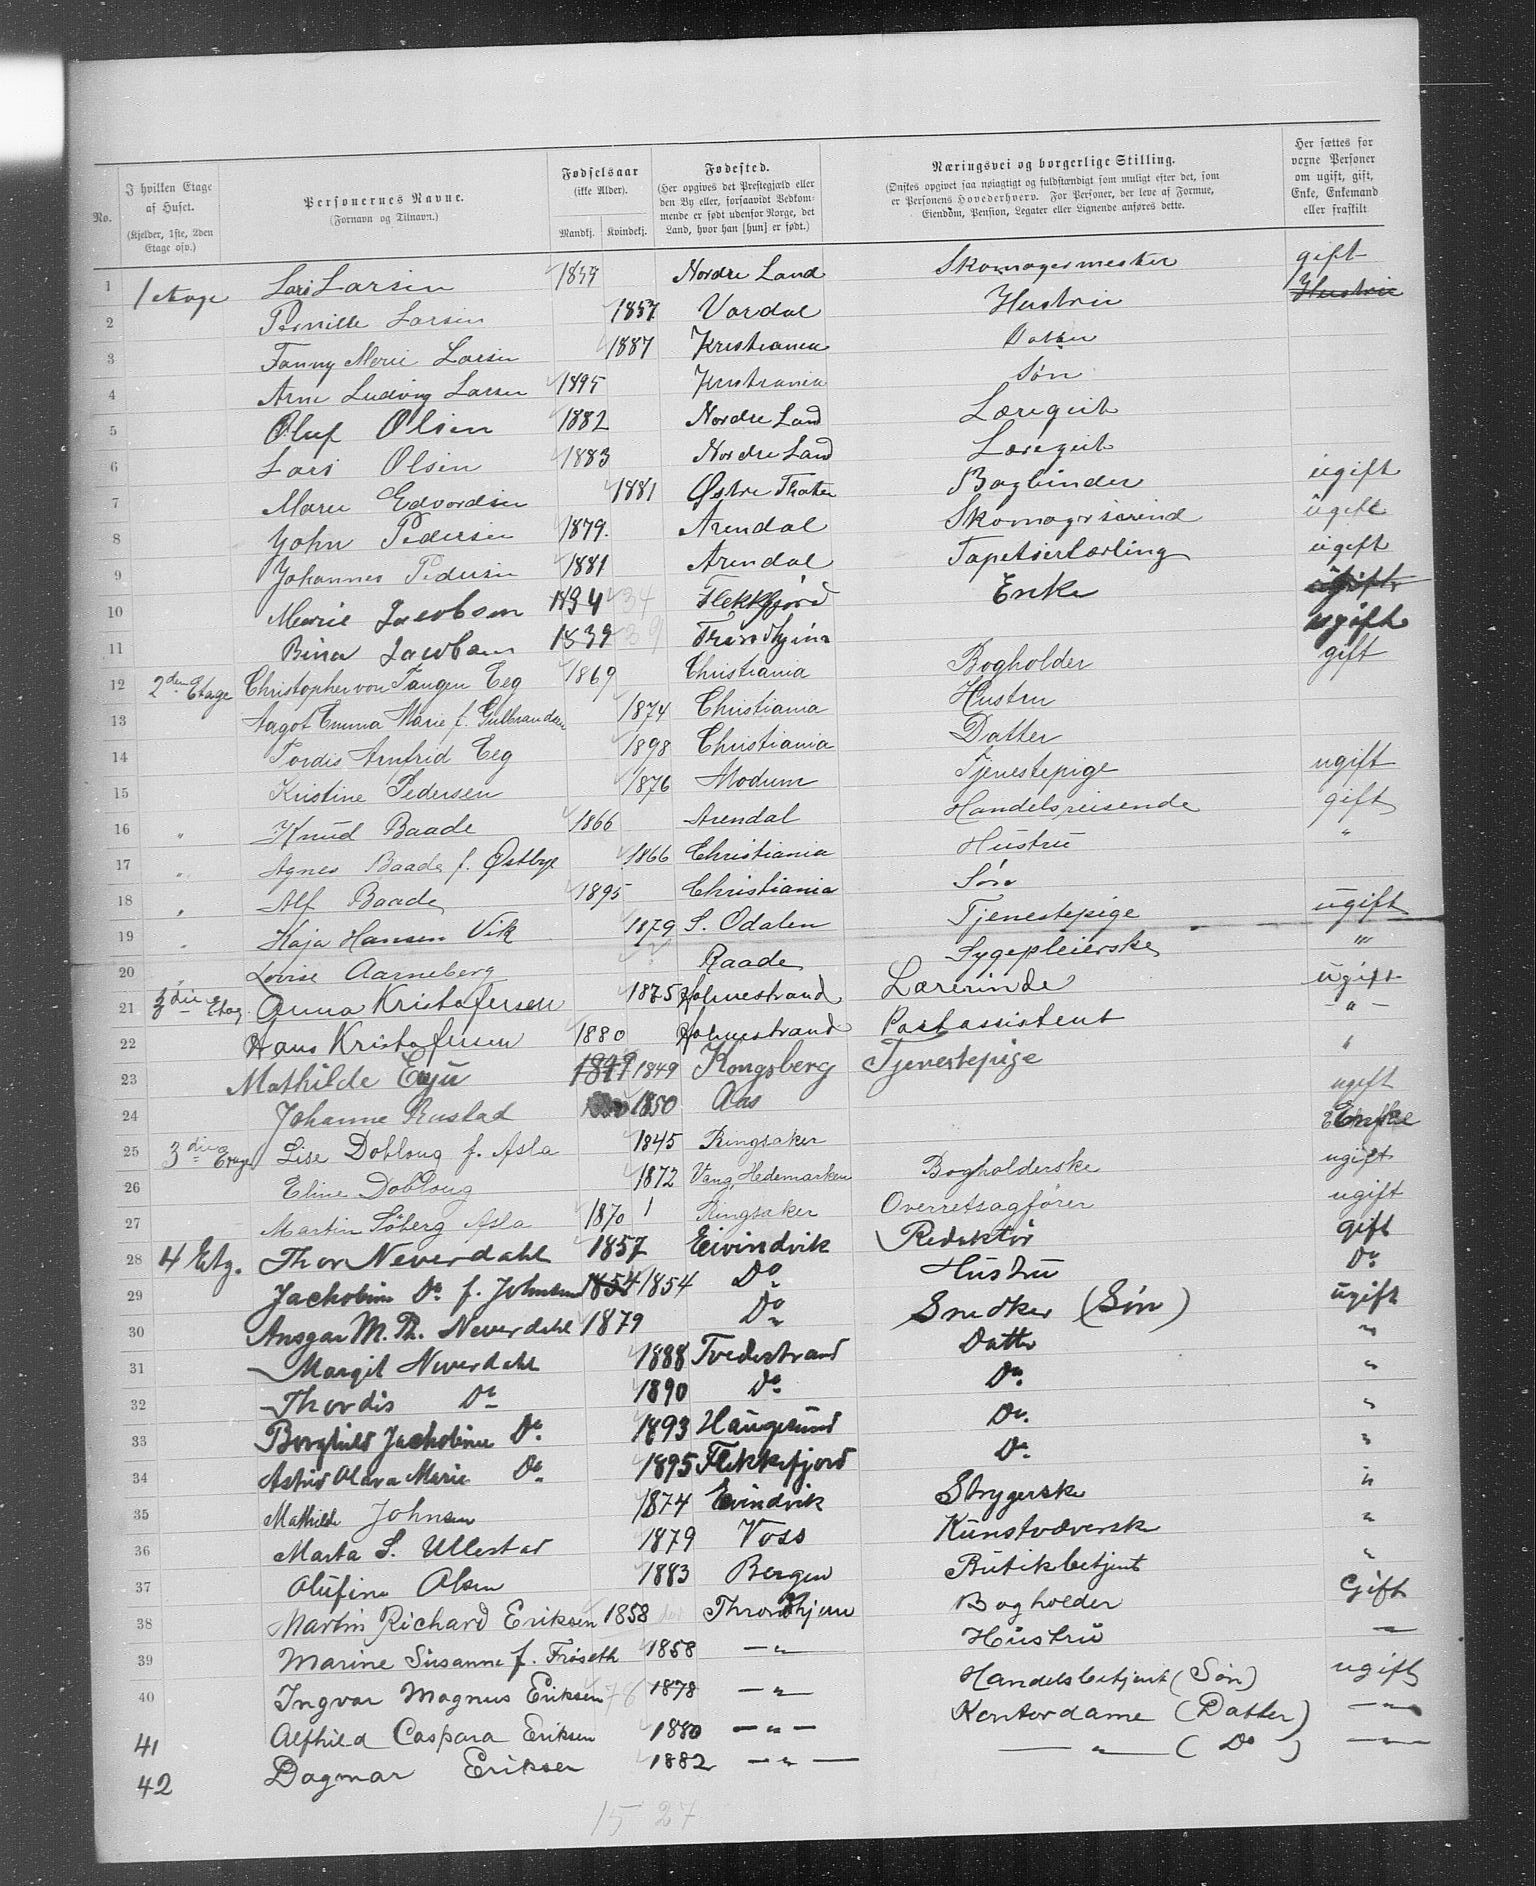 No.
I hvilken Etage af Huset. (Kjelder, 1ste, 2den Etage osv.)
Personernes Navne. (Fornavn og Tilnavn.)
Fødselsaar (ikke Alder). Mandkj. Kvindekj.
Fødested. (Her opgives det Prestegjæld eller den By eller, forsaavidt Vedkommende er født udenfor Norge, det Land, hvor han [hun] er født.)
Næringsvei og borgerlige Stilling. (Ønskes opgivet saa nøiagtigt og fuldstændigt som muligt efter det, som er Personens Hovederhverv. For Personer, der leve af Formue, Eiendom, Pension, Legater eller Lignende anføres dette.
Her sættes for voxne Personer om ugift, gift, Enke, Enkemand eller fraskilt
1 1 etage Lars Larsen Nordre Land Skomagermester gift
2 Pernille Larsen 1857 Vardal Hustru Hustru
3 Fanny Marie Larsen 1887 Kristiania Datter
4 Arne Ludvig Larsen 1895 Kristiania Søn
5 Oluf Olsen 1882 Nordre Land Læregut
6 Lars Olsen 1883 Nordre Land Læregut
7 Marie Edvardsen 1881 Østre Thoten Bogbinder ugift
8 John Pedersen 1879 Arendal Skomagersvend ugift
9 Johannes Pedersen 1881 Arendal Tapetserlærling ugift
10 Marie Jacobsen 1834 34 Flekkefjord Enke ugift
11 Bina Jacobsen 1839 39 Trondhjem ugift
12 2den Etage Christopher von Tangen Eeg 1869 Christiania Bogholder gift
13 Aagot Emma Marie f. Gulbrandsen 1874 Christiania Hustru
14 Tordis Arnfrid Eeg 1898 Christiania Datter
15 Kristine Pedersen 1876 Modum Tjenestepige ugift
16 " Knud Baade 1866 Arendal Handelsreisende gift
17 " Agnes Baade f. Østbye 1866 Christiania Hustru "
18 " Alf Baade 1895 Christiania Søn
19 " Kaja Hansen Vik 1879 S. Odalen Tjenestepige ugift
20 " Lovise Aarneberg Raade Sygepleierske "
21 3die Etag. Anna Kristofersen 1875 Holmestrand Lærerinde ugift
22 Hans Kristofersen 1880 Holmestrand Postassistent - " -
23 Mathilde Enju 1849 1849 Kongsberg Tjenestepige "
24 Johanne Rustad 1850 Aas ugift
25 3die Etage Lise Dobloug f. Asla 1845 Ringsaker Enke
26 Eline Dobloug 1872 Vang, Hedemarken Bogholderske ugift
27 Martin Söberg Asla 1870 Ringsaker Overretsagfører ugift
28 4 Etg. Thor Neverdahl 1857 Eivindvik Redaktør gift
29 Jackobine Do f. Johnsen 1854 1854 Do Hustru Do
30 Ansgar M. Th. Neverdahl 1879 Do Snedker (Søn) ugift
31 Margit Neverdahl 1888 Tvedestrand Datter "
32 Thordis Do 1890 Do Do "
33 Borghild Jackobine Do 1893 Haugesund Do "
34 Astrid Olava Marie Do 1895 Flekkefjord Do "
35 Mathilde Johnsen 1874 Eivindvik Strygerske "
36 Marta S. Ullestad 1879 Voss Kunstvæverske "
37 Olufine Olsen 1883 Bergen Butikbetjent "
38 Martin Richard Eriksen 1858 Throndhjem Bogholder Gift
39 Marine Susanne f. Frøseth 1858 — " — Hustru —
40 Ingvar Magnus Eriksen 78 1878 — " — Handelsbetjent (Søn) ugift
41 Alfhild Caspara Eriksen 1880 — " — Kontordame (Datter) — " —
42 Dagmar Eriksen 1882 — " — — " — ( Do ) — " —
15 27